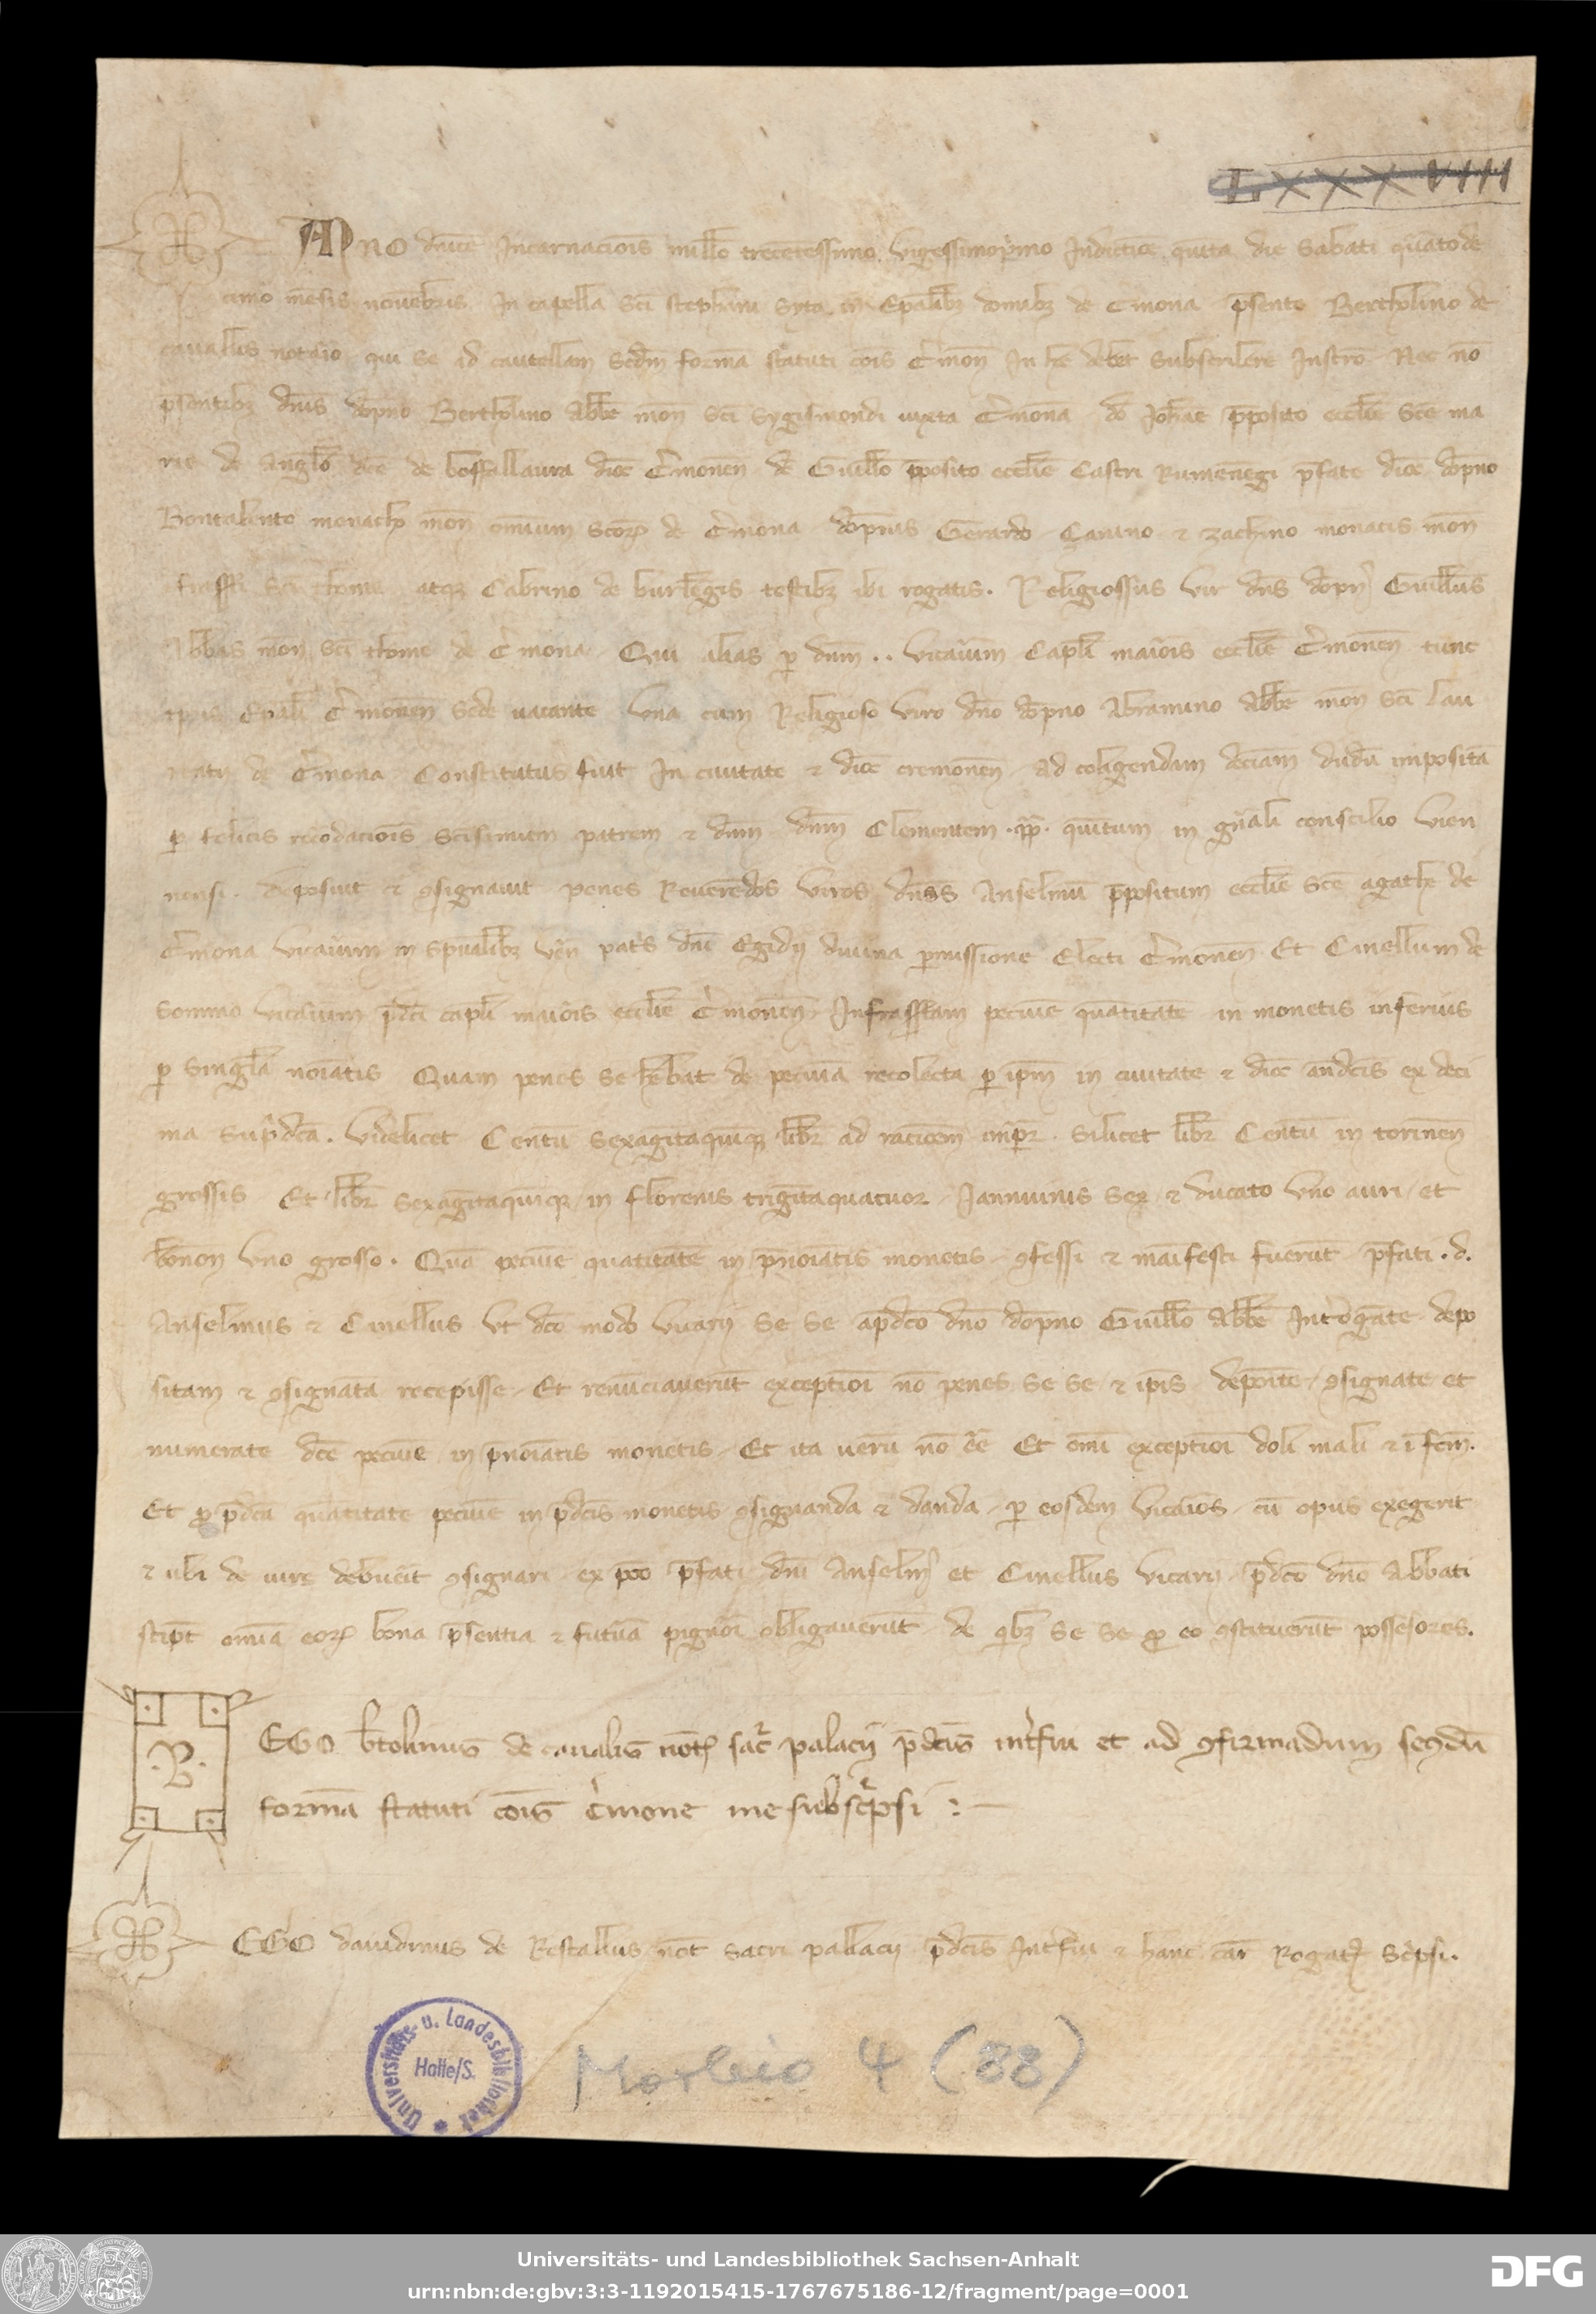 LXXXVIII
ANO dnice Incarnacois millo trecetessimo vigessimoprimo Indictioe quita die Sabati quartode
cimo mesis nouebris In capella sci stephani syta in Epalibz domibz de Cmona psente Bertholino de
caualis notaio qui se ad cautellam scdm forma statuti cois Cmon In hc debet subscribere Instro Nec no
psentibz dnis dopno Bertholino Abbe mon sci sygismondi iuxta Cmona do Johae pposito ecclie sce ma
rie de anglo dce de bossallaura dioc Cmonen de Guillo pposito ecclie Castri Rumenengi pfate dioc dopno
Bontalento monacho mon omium scorz de Cmona dopnis Gerardo Canino et zachino monacis mon
sci thome atqz Cabrino de burlegis testibz ibi rogatis. Religiossus vir dns dopn Guillus
Abbas mon sci thome de Cmona Qui alias p dnm .. vicaium Capli maiois ecclie Cmonen tunc
Epali Cmonen sede uacante vna cum Religioso viro dno dopno Abramino Abbe mon sci lau
rentij de Cmona Constitutus fuit In ciuitate et dioc cremonen ad coligendam deciam dudu imposita
p felicis recodaciois scissimum patrem et dnm dnm Clementem .pp. quitum in gnali conscilio vien
nensi. deposuit et gsignauit penes Reueredos viros dnos Anselmu ppositum ecclie sce agathe de
Cmona vicaium in spualibz ven patis dni Egidij diuina pmissione Electi Cmonen Et Cinellum de
sommo vicaium pdci capli maiois ecclie Cmonen Infrasstam pecuie quatitate in monetis inferius
p singla noiatis Quam penes se hebat de pecuia recolecta p ipm in ciuitate et dioc andcis ex deci
ma supdca. videlicet Centu sexagitaquiqz libr ad racioem inpr. silicet libr Centu in torinen
grossis Et libr sexagitaquiqz in florenis trigitaquatuor Januinis sex et ducato vno auri et
bonon vno grosso. Qua pecuie quatitate in pnoiatis monetis gfessi et maifesti fuerut pfati .d.
Anselmus et Cinellus vt dco modo vicarij se se apdco dno dopno Guillo Abbe Introgate depo
sitam et gsignata recepisse Et renunciauerut exceptioi no penes se se et ipis depoite gsignate et
numerate dce pecuie in pnoiatis monetis Et ita ueru no ee Et omi exceptioi doli mali et i fcm.
Et p pdca quatitate pecuie in pdcis monetis gsignanda et danda p eosdem vicaios cu opus exegerit
et ubi de iure debueit gsignari ex pco pfati dni Anselm et Cinellus vicarij pdco dno Abbati
stipt omia eorz bona psentia et futua pignoi obligauerut de qbz se se p eo gstituerut possesores.
B
EGO btolinus de caualis not sacr palacij pdcis intfui et ad gfirmadum secdu
forma statuti cois Cmone me subscripsi :
EGO dauidinus de Restallis not sacri pallacij pdcis Intfui et hanc car Rogat scpsi.
Universitäts- u. Landesbibliothek
Halle/S.
Morbio 4 (88)
Universitäts- und Landesbibliothek Sachsen-Anhalt
urn:nbn:de:gbv:3:3-1192015415-1767675186-12/fragment/page=0001
DFG